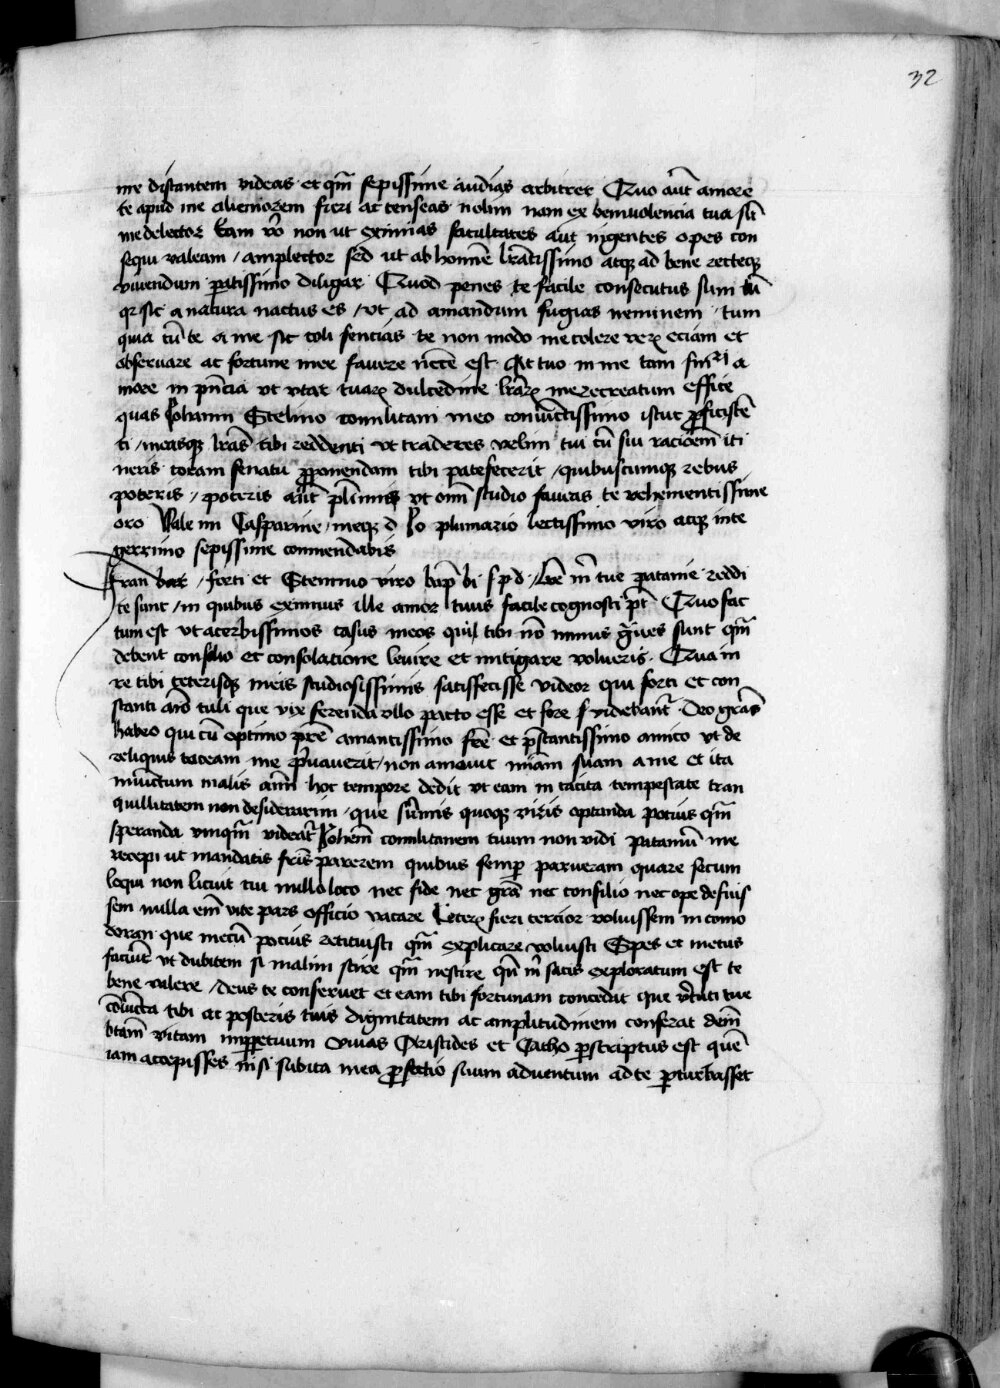 32
me distantem videas et qm̄ sepissime audias arbitrer Quo aūt amore
te apud me alieniorem fieri ac censeas nolim nam ex benivolencia tua sic̄
me delector Eam v̄o non ut eximias facultates aut ingentes opes con
sequi valeam / amplector sed ut ab homīe l̄rātissimo atqꝫ ad bene recteqꝫ
vivendum patissimo diligar Quod penes te facile consecutus sum tū
qꝛ sic a natura nactus es / ut ad amandum fugias neminem / tum
quia tū te a me sic coli sencias te non modo me colere veꝝ eciam et
observare ac fortune mee favere n̄cc̄e est At tuo in me tam a
more in p̄ncia ut utar tuaꝝ dulcedine l̄raꝝ me recreatum effice
quas Iohanni Stelino conmilitani meo coniūctissimo istuc ꝓficiscēn
ti / measqꝫ l̄ras tibi reddenti ut traderes velim tui cū sui racioēm iti
neris coram senatu ꝓponendam tibi patefecerit / quibuscumqꝫ rebus
poteris / poteris aūt pl̄imis ut om̄i studio faveas te vehementissime
oro Vale mi Casparine / meqꝫ d Io plumario lectissimo viro atqꝫ inte
gerrimo sepissime conmendabis
Fran bar / forti et Strennuo viro bap̄ b̄i s p d / L̄re m̄ tue patavie reddi
te sunt / in quibus eximius ille amor tuus facile cognosci p̄t Quo fac
tum est ut acerbissimos casus meos qui tibi nō minus ḡves sunt qm̄
debent consilio et consolacione levire et mitigare volueris. Qua in
re tibi ceterisqꝫ meis studiosissimis satisfecisse videor qui forti et con
stanti aīo tuli que vix ferenda ullo pacto esse et fore videbant̄ Deo gr̄as
habeo qui cū optimo pr̄e amantissimo fr̄e et p̄stantissimo amico ut de
reliquis taceam me p̄vauerit / non amovit m̄iam suam a me et ita
invictum malis aīm hoc tempore dedit ut eam in tacita tempestate tran
quillitatem non desiderarim / que sūmis quoqꝫ viris optanda potius qm̄
speranda umqm̄ videat̄ Ioh̄em conmilitanem tuum non vidi patavīu me
recepi ut mandatis fr̄is parerem quibus semꝑ parueram quare secum
loqui non licuit tui nullo loco nec fide nec gr̄a nec consilio nec ope defuis
sem nulla em̄ vite pars officio vacare Ceteꝝ fieri cercior voluissem in como
doran que mecū pocius reticuisti qm̄ explicare voluisti Spes et metus
faciūt ut dubitem si malim scire qm̄ nescire qn̄ m̄ satis exploratum est te
bene valere / deus te conservet et eam tibi fortunam concedat que v̄tuti tue
cōiūcta tibi ac posteris tuis dignitatem ac amplitudinem conferat dem̄
b̄tam vitam inꝑpetuum Vivas Aristides et Catho ꝑscriptus est quē
iam accepisses nisi subita mea ꝓfectio suum adventum ad te ꝑturbasset